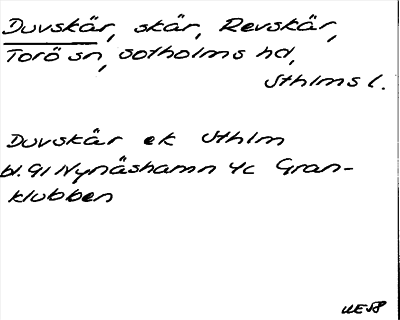 Duvskär, skär, Revskär,
Torö sn, Sotholms hd,
Sthlms l.
Duvskär ek Sthlm
bl. 91 Nynäshamn 4c Gran-
klubben
UE58